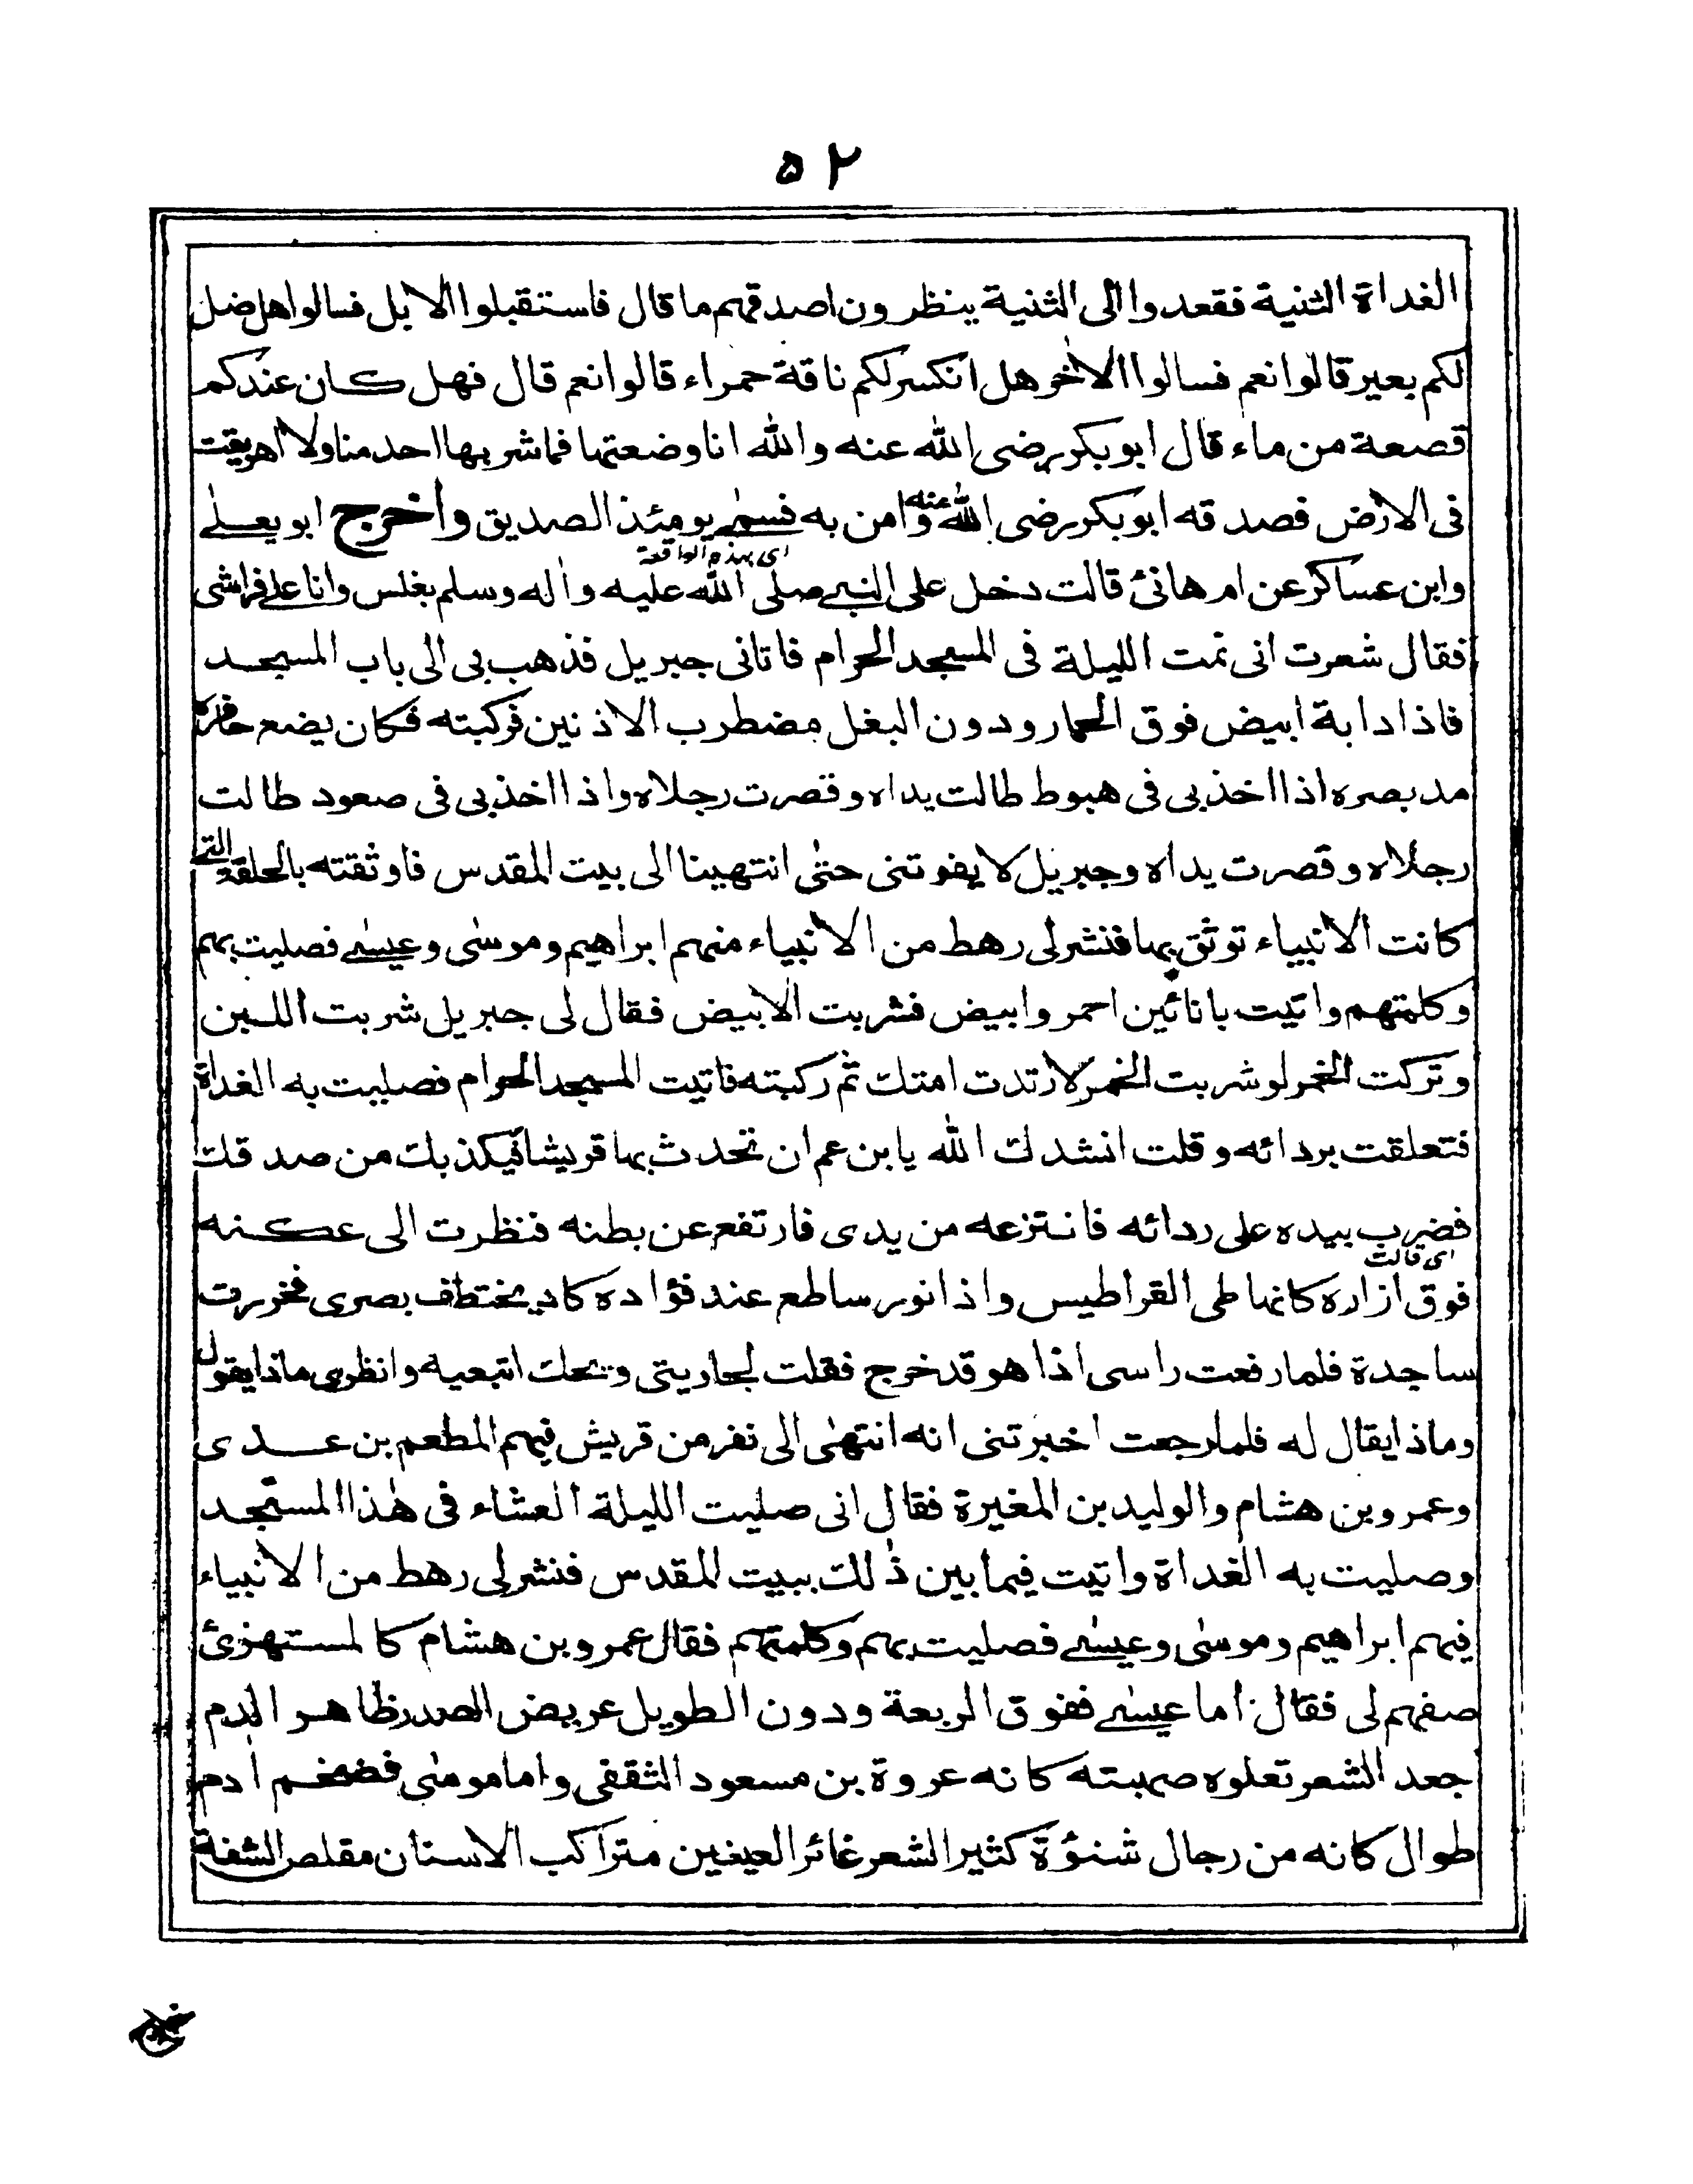 ۵۲
الغداة الثنية فقعدوا الى الثنية ينظرون اصدقهم ما قال فاستقبلوا الابل فسالوا هل ضل
لكم بعير قالوا نعم فسالوا الاخر هل انكسر لكم ناقة حمراء قالوا نعم قال فهل كان عندكم
قصعة من ماء قال ابو بكر رضى الله عنه والله انا وضعتها فما شربها احد منا ولا اهريقت
فى الارض فصدقه ابو بكر رضى الله عنه وامن به فسمى يومئذ الصديق واخرج ابو يعلى
اى بهذه الواقعة
وابن عساكر عن ام هانئ قالت دخل على النبى صلى الله عليه واله وسلم بغلس وانا على فراشى
فقال شعرت انى نمت الليلة فى المسجد الحرام فاتانى جبريل فذهب بى الى باب المسجد
فاذا دابة ابيض فوق الحمار ودون البغل مضطرب الاذنين فركبته فكان يضع حافره
مد بصره اذا اخذ بى فى هبوط طالت يداه وقصرت رجلاه واذا اخذ بى فى صعود طالت
رجلاه وقصرت يداه وجبريل لا يفوتنى حتى انتهينا الى بيت المقدس فاوثقته بالحلقة التى
كانت الانبياء توثق بها فنشر لى رهط من الانبياء منهم ابراهيم وموسى وعيسى فصليت بهم
وكلمتهم واتيت بانائين احمر وابيض فشربت الابيض فقال لى جبريل شربت اللبن
وتركت الخمر لو شربت الخمر لارتدت امتك ثم ركبته فاتيت المسجد الحرام فصليت به الغداة
فتعلقت بردائه وقلت انشدك الله يا بن عم ان تحدث بها قريشا فيكذبك من صدقك
فضرب بيده على ردائه فانتزعه من يدى فارتفع عن بطنه فنظرت الى عكنه
اى قالت
فوق ازاره كانها طى القراطيس واذا نور ساطع عند فؤاده كاد يختطف بصرى فخررت
ساجدة فلما رفعت راسى اذا هو قد خرج فقلت لجاريتى ويحك اتبعيه وانظرى ماذا يقول
وماذا يقال له فلما رجعت اخبرتنى انه انتهى الى نفر من قريش فيهم المطعم بن عدى
وعمرو بن هشام والوليد بن المغيرة فقال انى صليت الليلة العشاء فى هذا المسجد
وصليت به الغداة واتيت فيما بين ذلك ببيت المقدس فنشر لى رهط من الانبياء
فيهم ابراهيم وموسى وعيسى فصليت بهم وكلمتهم فقال عمرو بن هشام كالمستهزئ
صفهم لى فقال اما عيسى ففوق الربعة ودون الطويل عريض الصدر ظاهر الدم
جعد الشعر تعلوه صهبته كانه عروة بن مسعود الثقفى واما موسى فضخم ادم
طوال كانه من رجال شنؤة كثير الشعر غائر العينين متراكب الاسنان مقلص الشفة